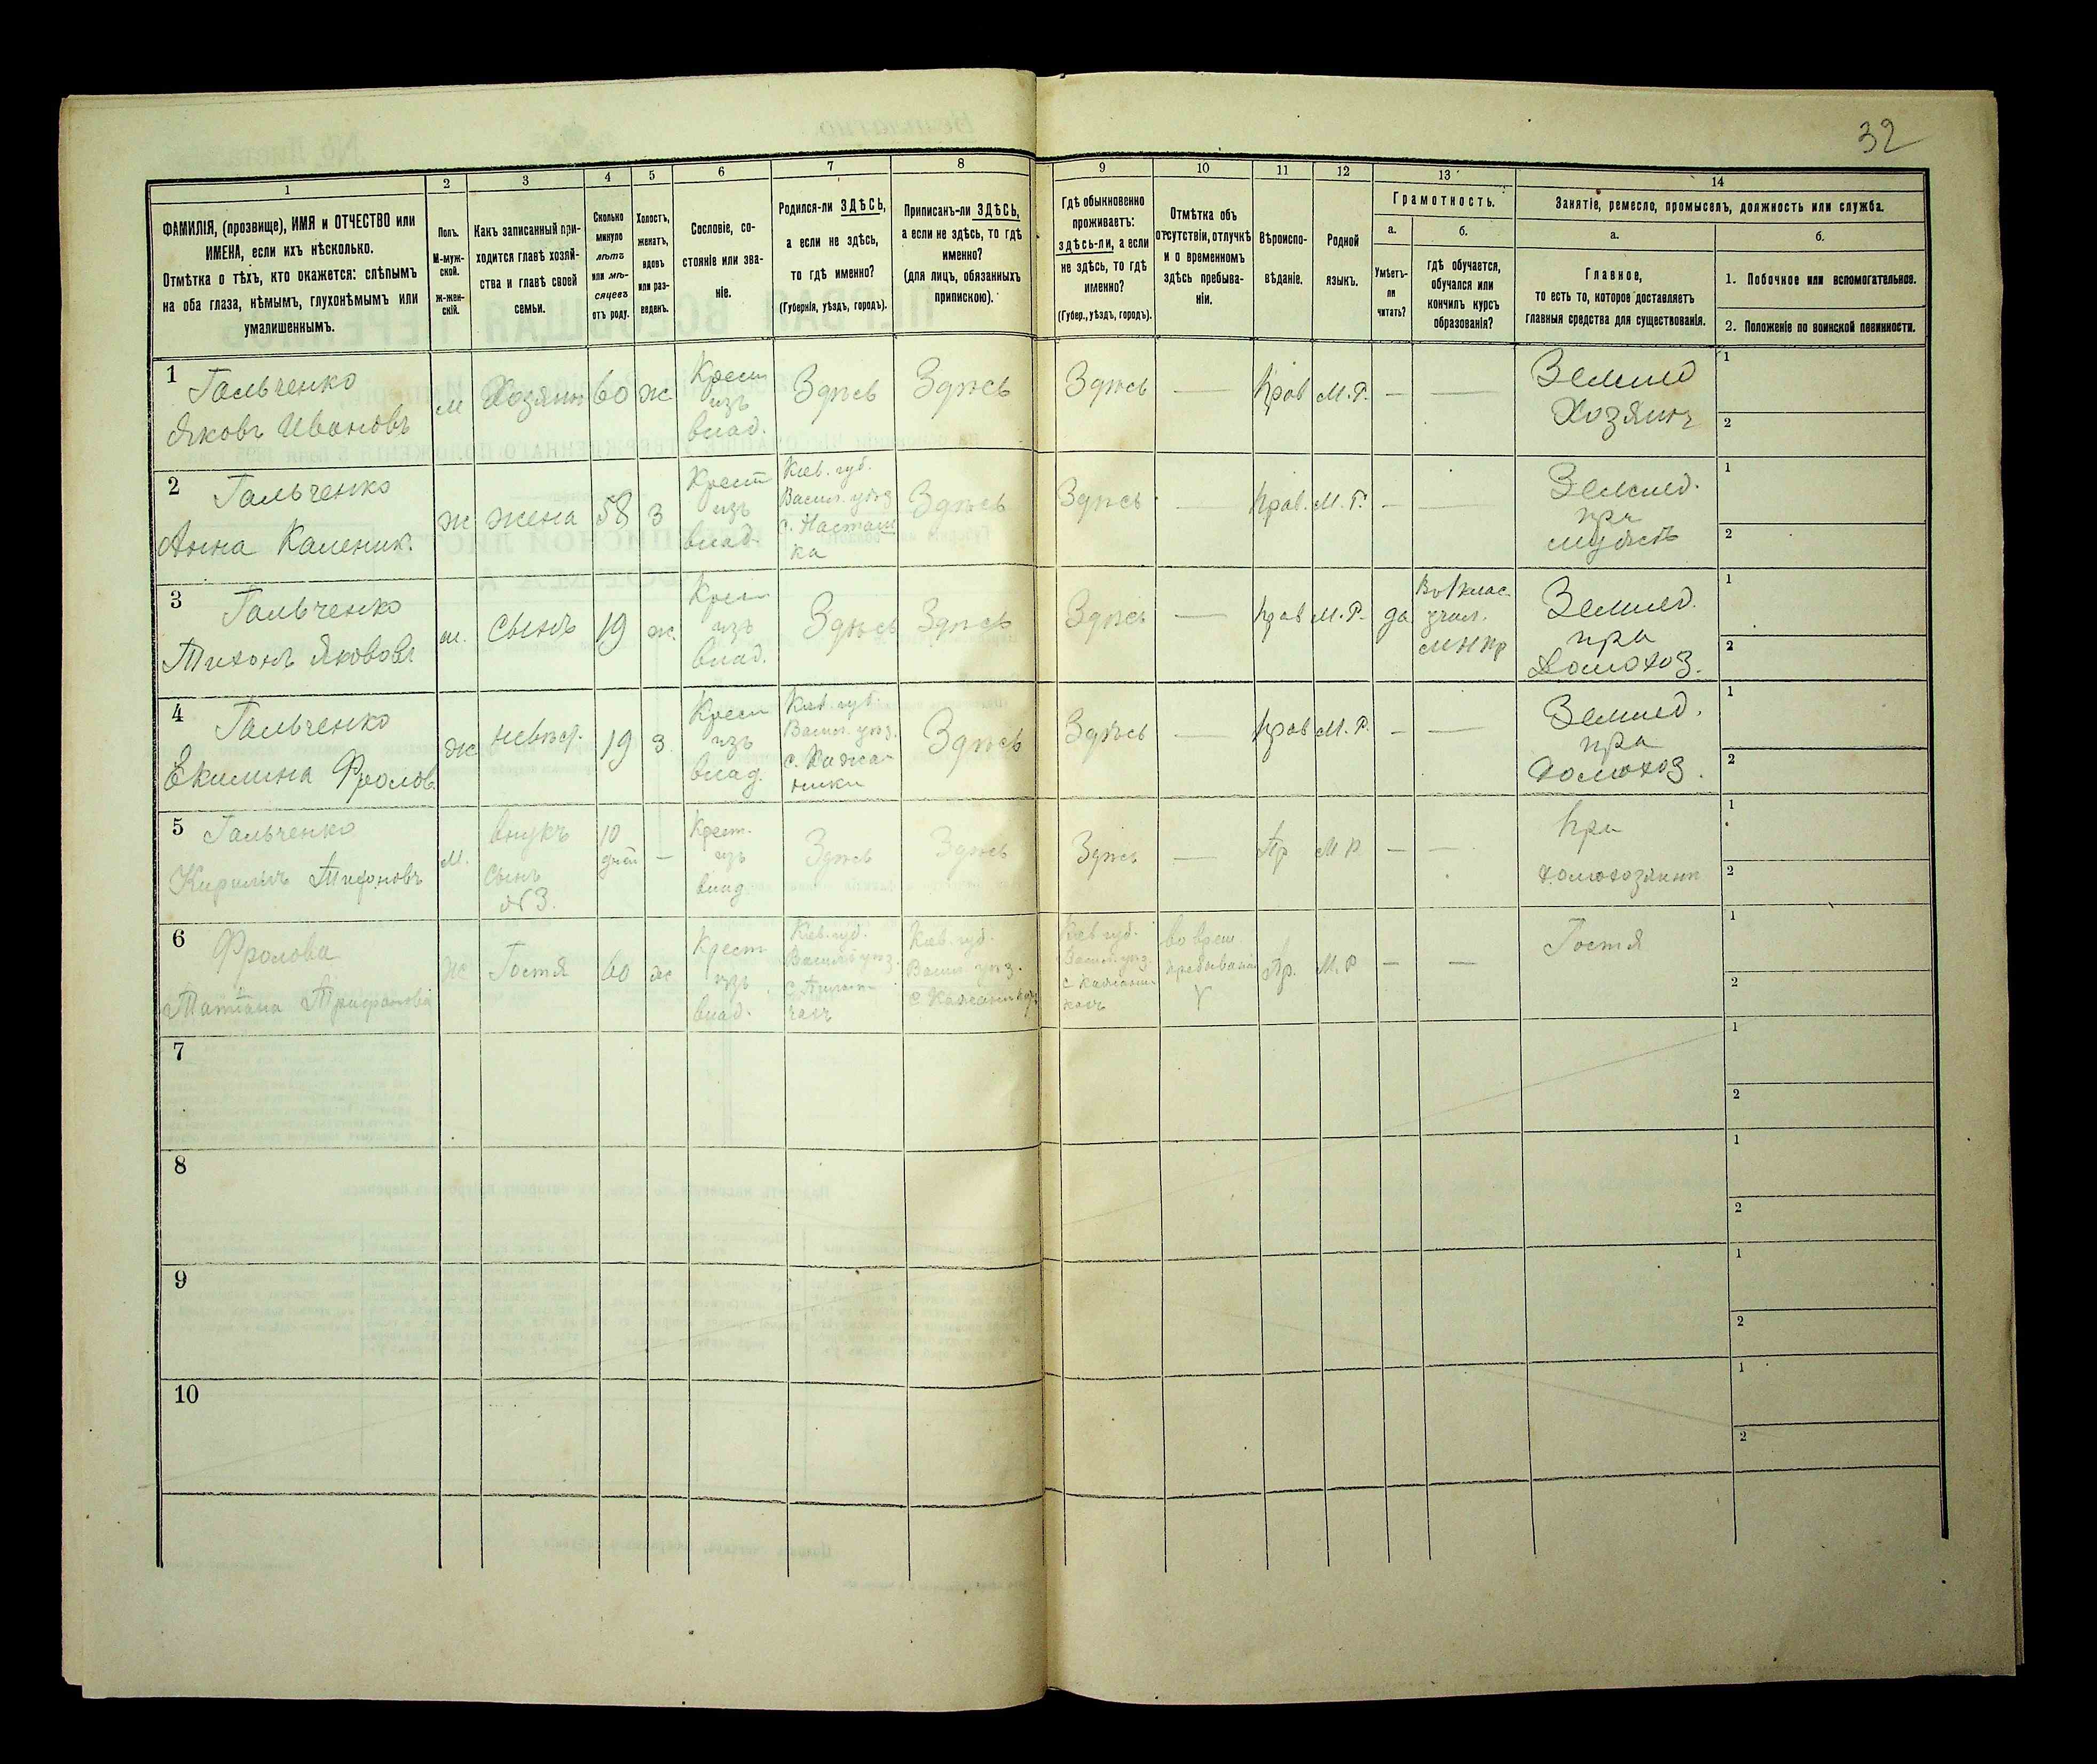 32
1
2
3
4
5
6
7
8
9
10
11
12
13
14
ФАМИЛІЯ, (прозвище), ИМЯ и ОТЧЕСТВО или
ИМЕНА, если ихъ нѣсколько.
Отмѣтка о тѣхъ, кто окажется: слѣпымъ
на оба глаза, нѣмымъ, глухонѣмымъ или
умалишеннымъ.
Полъ.
М-муж-
ской.
ж-жен-
скій.
Какъ записанный при-
ходится главѣ хозяй-
ства и главѣ своей
семьи.
Сколько
минуло
лѣтъ
или мѣ-
сяцевъ
отъ роду.
Холостъ,
женатъ,
вдовъ
или раз-
веденъ.
Сословіе, со-
стояніе или зва-
ніе.
Родился-ли ЗДѢСЬ,
а если не здѣсь,
то гдѣ именно?
(Губернія, уѣздъ, городъ).
Приписанъ-ли ЗДѢСЬ,
а если не здѣсь, то гдѣ
именно?
(для лицъ, обязанныхъ
припискою).
Гдѣ обыкновенно
проживаетъ:
здѣсь-ли, а если
не здѣсь, то гдѣ
именно?
(Губер., уѣздъ, городъ).
Отмѣтка объ
отсутствіи, отлучкѣ
и о временномъ
здѣсь пребыва-
ніи.
Вѣроиспо-
вѣданіе.
Родной
языкъ.
Грамотность.
а.
Умѣетъ-
ли
читать?
б.
гдѣ обучается,
обучался или
кончилъ курсъ
образованія?
Занятіе, ремесло, промыселъ, должность или служба.
а.
Главное,
то есть то, которое доставляетъ
главныя средства для существованія.
б.
1. Побочное или вспомогательное.
2. Положеніе по воинской повинности.
1
Гальченко
Яковъ Ивановъ
м
Хозяинъ
60
ж
Крест
изъ
влад.
Здѣсь
Здѣсь
Здѣсь
—
Прав
М.Р.
—
—
Землед
Хозяинъ
1
2
2
Гальченко
Анна Каленик.
ж
жена
58
з
Крест
изъ
влад.
Кіев. губ.
Васил. уѣз
с. Насташ
ка
Здѣсь
Здѣсь
—
Прав.
М.Р.
—
—
Землед.
при
мужѣ
1
2
3
Гальченко
Тихонъ Яковов
м.
сынъ
19
ж.
Крест
изъ
влад.
Здѣсь
Здѣсь
Здѣсь
—
Прав
М.Р.
да
Во 1 клас.
учил.
Землед.
при
домохоз.
1
2
4
Гальченко
Екилина Фролов.
ж
невѣс.
19
з
Крест
изъ
влад.
Кіев. губ.
Васил. уѣз.
с. Кажа-
ники
Здѣсь
Здѣсь
—
Прав
М.Р.
—
—
Землед.
при
домохоз.
1
2
5
Гальченко
Кирилъ Тихоновъ
м.
внукъ
сынъ
№3.
10
дней
—
Крест.
изъ
влад
Здѣсь
Здѣсь
Здѣсь
—
Пр
М Р.
—
—
При
домохозяинѣ
1
2
6
Фролова
Татіана
ж
Гостя
60
ж
Крест
изъ
влад.
Кіев. губ.
Васил. уѣз.
Кіев. губ.
Васил. уѣз.
с Кажаникахъ
Кіев губ.
Васил. уѣз.
с Кажани-
кахъ
во врем
пребываніи
Пр.
М.Р
—
—
Гостя
1
2
7
1
2
8
1
2
9
1
2
10
1
2